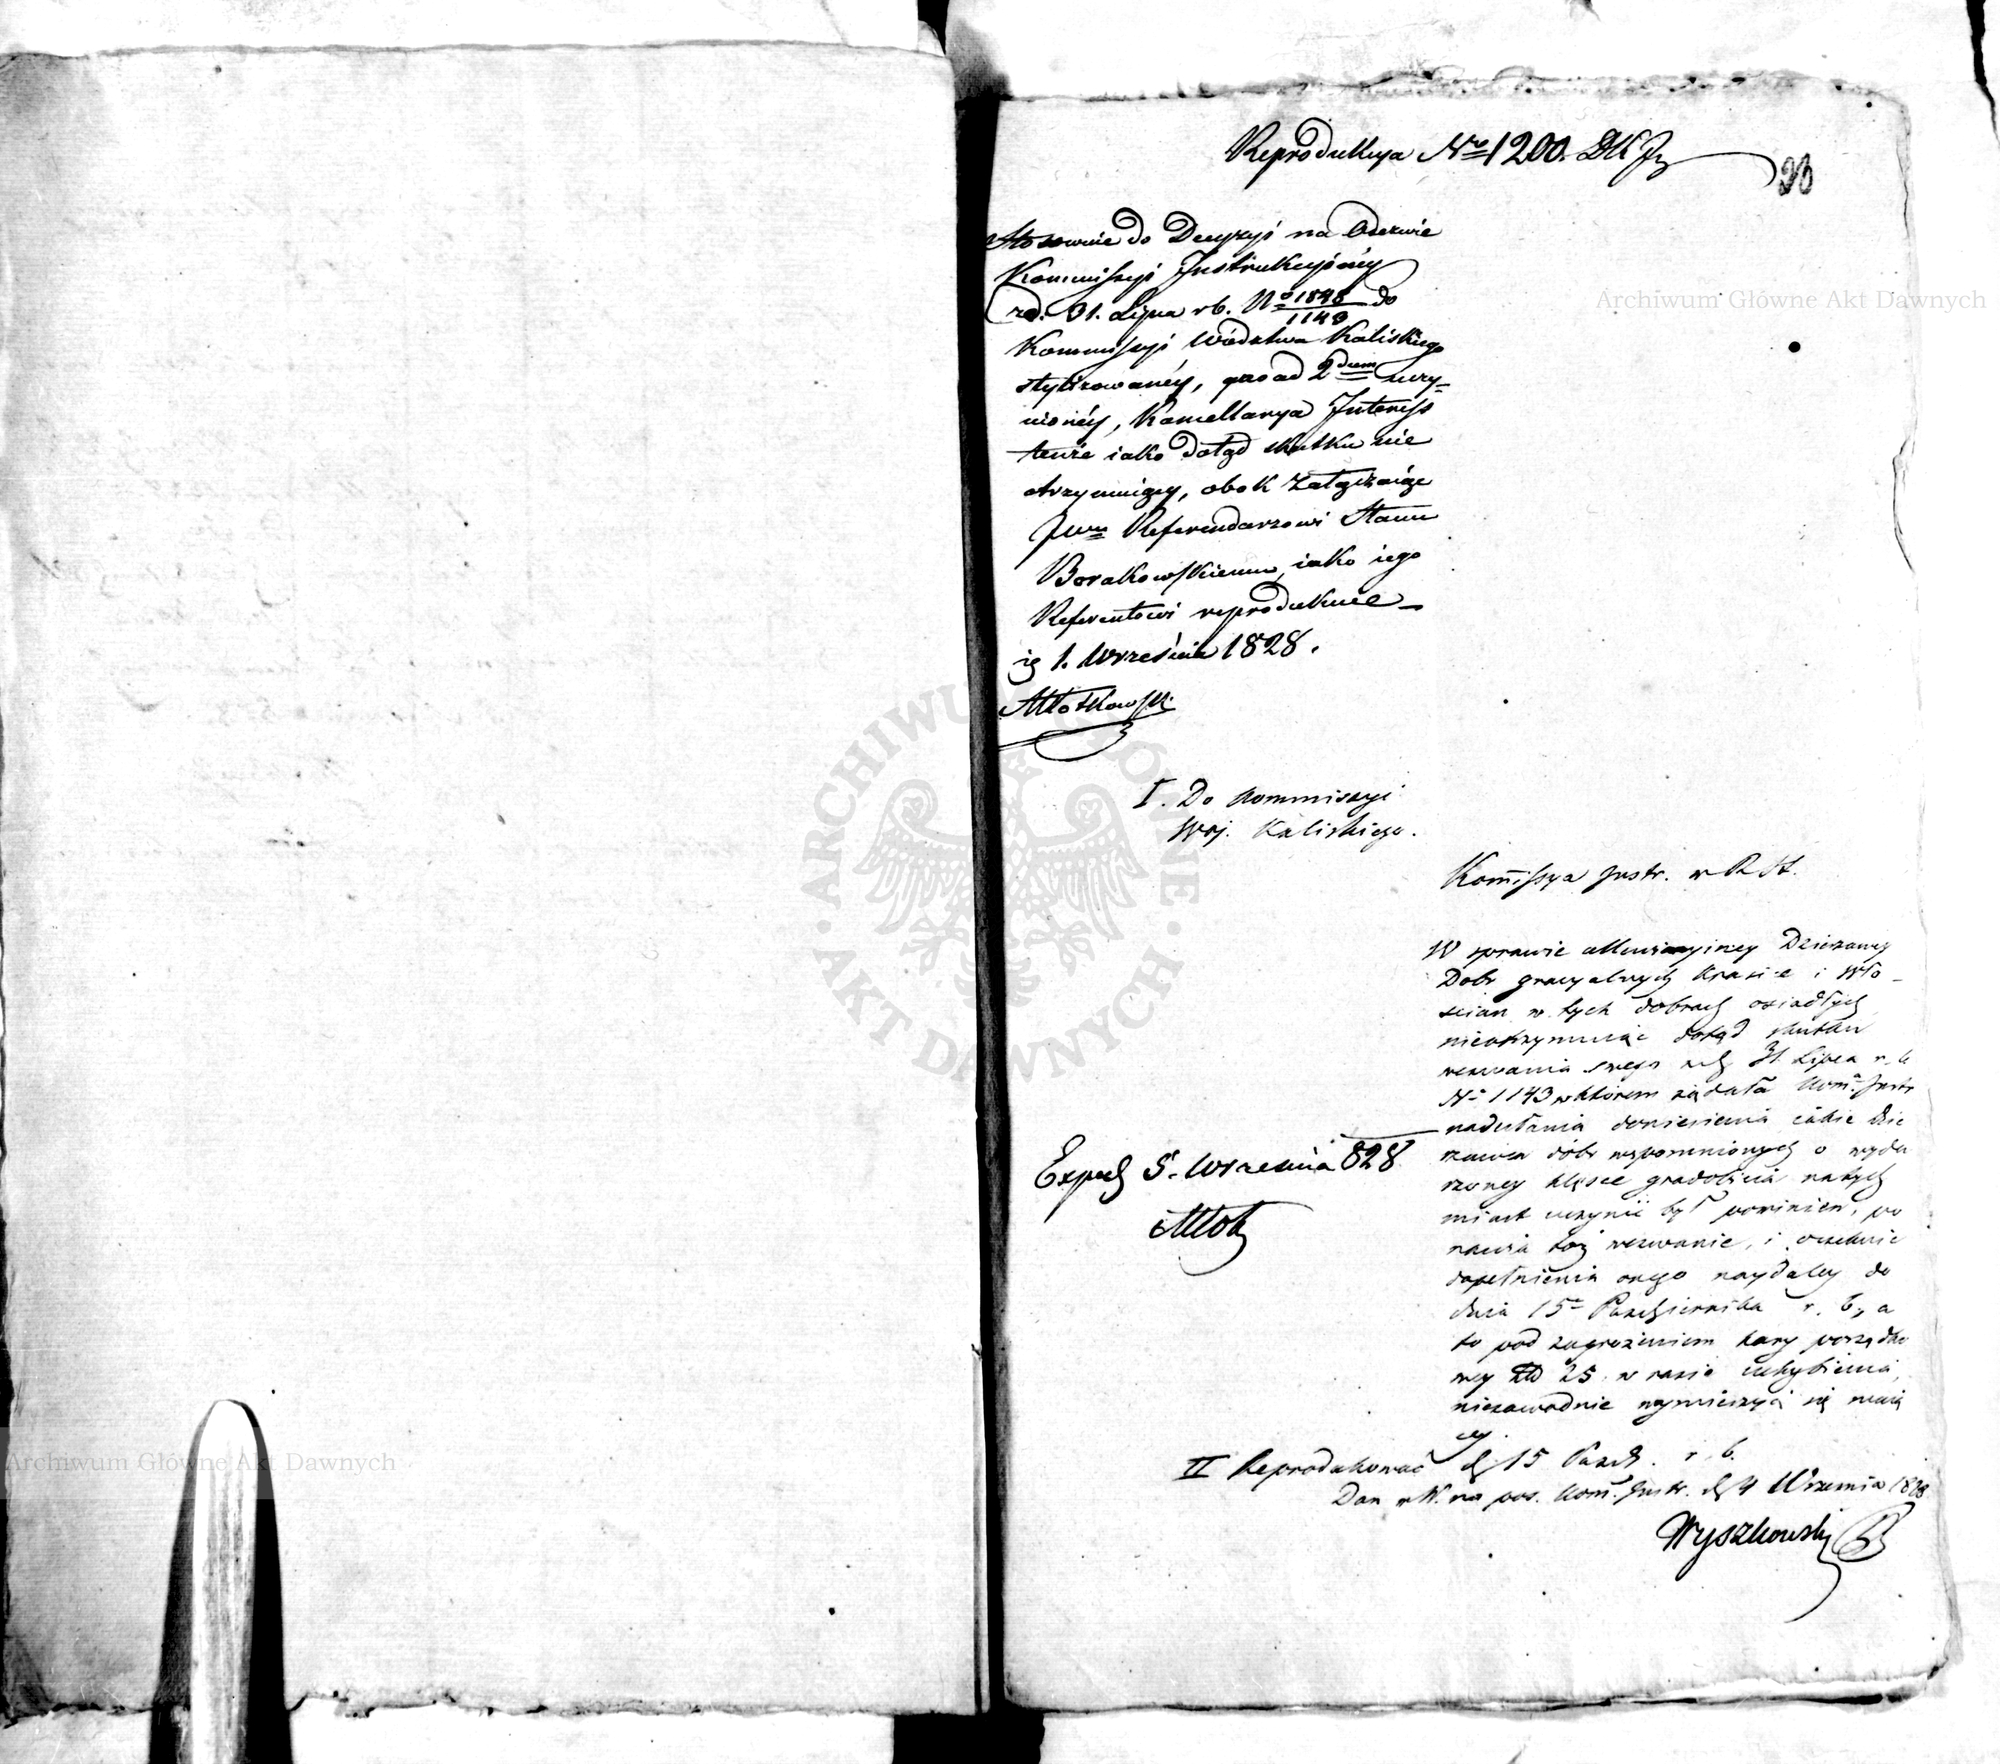 Reprodukcya Nro 1200. DKJ
26
Stosownie do Decyzyi na Odezwie
Kommissyi Instrukcyiney
zd. 31. Lipca rb. No 1848/1143 do
Kommissyi Wództwa Kaliskiego
stylizowaney, quo ad 2dum uczy=
nioney, Kancellarya Interess
tenże iako dotąd skutku nie
otrzymuiący, obok załączaiąc
Jwu Referendarzowi Stanu
Borakowskiemu, iako iego
Referentowi reprodukuie
1. Września 1828.
Młotkowski
I. Do Kommissyi
Woj. Kaliskiego.
Kommissya Instr. w R St.
W sprawie allewiacyiney Dzierzawcy
Dobr gracyalnych i Wło-
scian w tych dobrach osiadłych
nieotrzymuiąc dotąd skutku
wezwania swego z d. 31. Lipca r. b.
No 1143 w którem żądała Komm. Instr
nadesłania doniesienia iakie dzie
rzawca dóbr wspomnionych o wyda
rzoney klęsce gradobicia natych
miast uczynić był powinien, po
nawia toż wezwanie, i oczekuie
dopełnienia onego naydaley do
dnia 15o Października r. b., a
to pod zagrożeniem kary porządko
wey Złł 25 w razie uchybienia,
niezawodnie wymierzyć się maią
cey.
Exped. 5. Września 828
Młotk
II Reprodukować d. 15 Paźdz. r. b.
Dan w W. na pos. Kom. Instr. d. 4 Września 1828
Wyszkowski
Archiwum Główne Akt Dawnych
Archiwum Główne Akt Dawnych
ARCHIWUM GŁÓWNE · AKT DAWNYCH ·